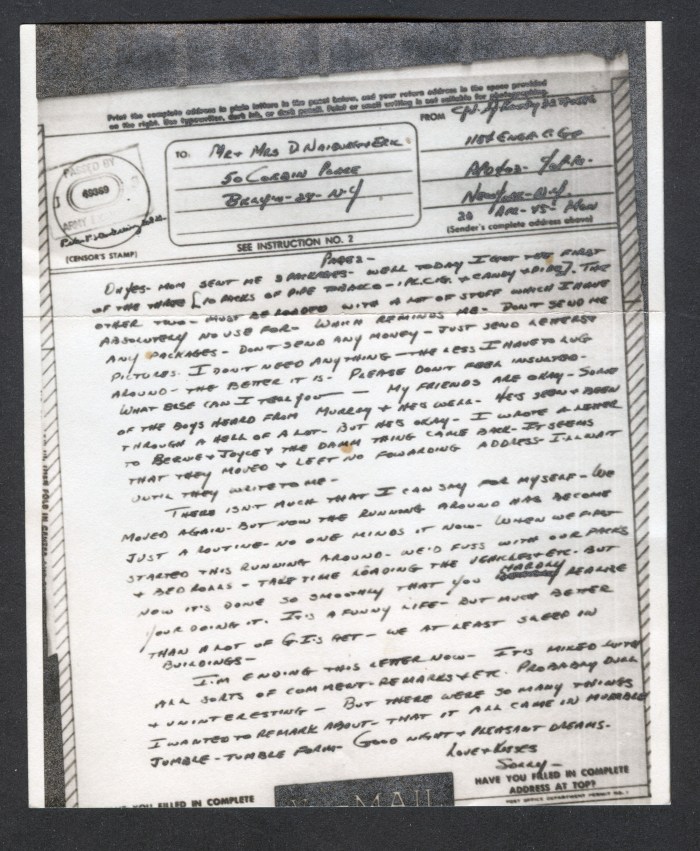 Print the complete address in plain letters in the panel below, and your return address in the space provided
on the right. Use typewriter, dark ink, or dark pencil. Faint or small writing is not suitable for photographing.
FROM
TO:
MR + MRS D NAIBURG + ERIC
50 CORBIN PLACE
BKLYN-24-N-Y
1187 ENGR C. GP
APO 408- % P.M.-
NEW YORK-N-Y-
20 APR-45-
(Sender's complete address above)
PASSED BY
49369
ARMY
(CENSOR'S STAMP)
SEE INSTRUCTION NO. 2
PAGE 2-
OH YES- MOM SENT ME 3 PACKAGES- WELL TODAY I GOT THE FIRST
OF THE THREE [10 PACKS OF PIPE TOBACCO- 1 PK CIG. + CANDY + PIPE]. THE
OTHER TWO- MUST BE LOADED WITH A LOT OF STUFF WHICH I HAVE
ABSOLUTELY NO USE FOR- WHICH REMINDS ME- DON'T SEND ME
ANY PACKAGES- DON'T SEND ANY MONEY- JUST SEND LETTERS +
PICTURES. I DON'T NEED ANYTHING- THE LESS I HAVE TO LUG
AROUND- THE BETTER IT IS- PLEASE DON'T FEEL INSULTED-
WHAT ELSE CAN I TELL YOU — MY FRIENDS ARE OKAY- SOME
OF THE BOYS HEARD FROM MURRAY + HE'S WELL- HE'S SEEN + BEEN
THROUGH A HELL OF A LOT- BUT HE'S OKAY- I WROTE A LETTER
TO BERNIE + JOYCE + THE DAMM THING CAME BACK- IT SEEMS
THAT THEY MOVED + LEFT NO FOWARDING ADDRESS- I'LL WAIT
UNTIL THEY WRITE TO ME-
THERE ISN'T MUCH THAT I CAN SAY FOR MYSELF- WE
MOVED AGAIN- BUT NOW THE RUNNING AROUND HAS BECOME
JUST A ROUTINE- NO ONE MINDS IT NOW- WHEN WE FIRST
STARTED THIS RUNNING AROUND- WE'D FUSS WITH OUR PACKS
+ BED ROLLS- TAKE TIME LOADING THE VEHICLES + ETC- BUT
NOW IT'S DONE SO SMOOTHLY THAT YOU HARDLY REALIZE
YOUR DOING IT. IT'S A FUNNY LIFE- BUT MUCH BETTER
THAN A LOT OF G.I.'S GET- WE AT LEAST SLEEP IN
BUILDINGS-
I'M ENDING THIS LETTER NOW- IT'S MIXED WITH
ALL SORTS OF COMMENT- REMARKS + ETC. PROBABLY DULL
+ UNINTERESTING- BUT THERE WERE SO MANY THINGS
I WANTED TO REMARK ABOUT- THAT IT ALL CAME IN
JUMBLE-TUMBLE FORM- GOOD NIGHT + PLEASANT DREAMS-
LOVE + KISSES
HAVE YOU FILLED IN COMPLETE
ADDRESS AT TOP?
YOU FILLED IN COMPLETE
MAIL
POST OFFICE DEPARTMENT PERMIT NO. 1